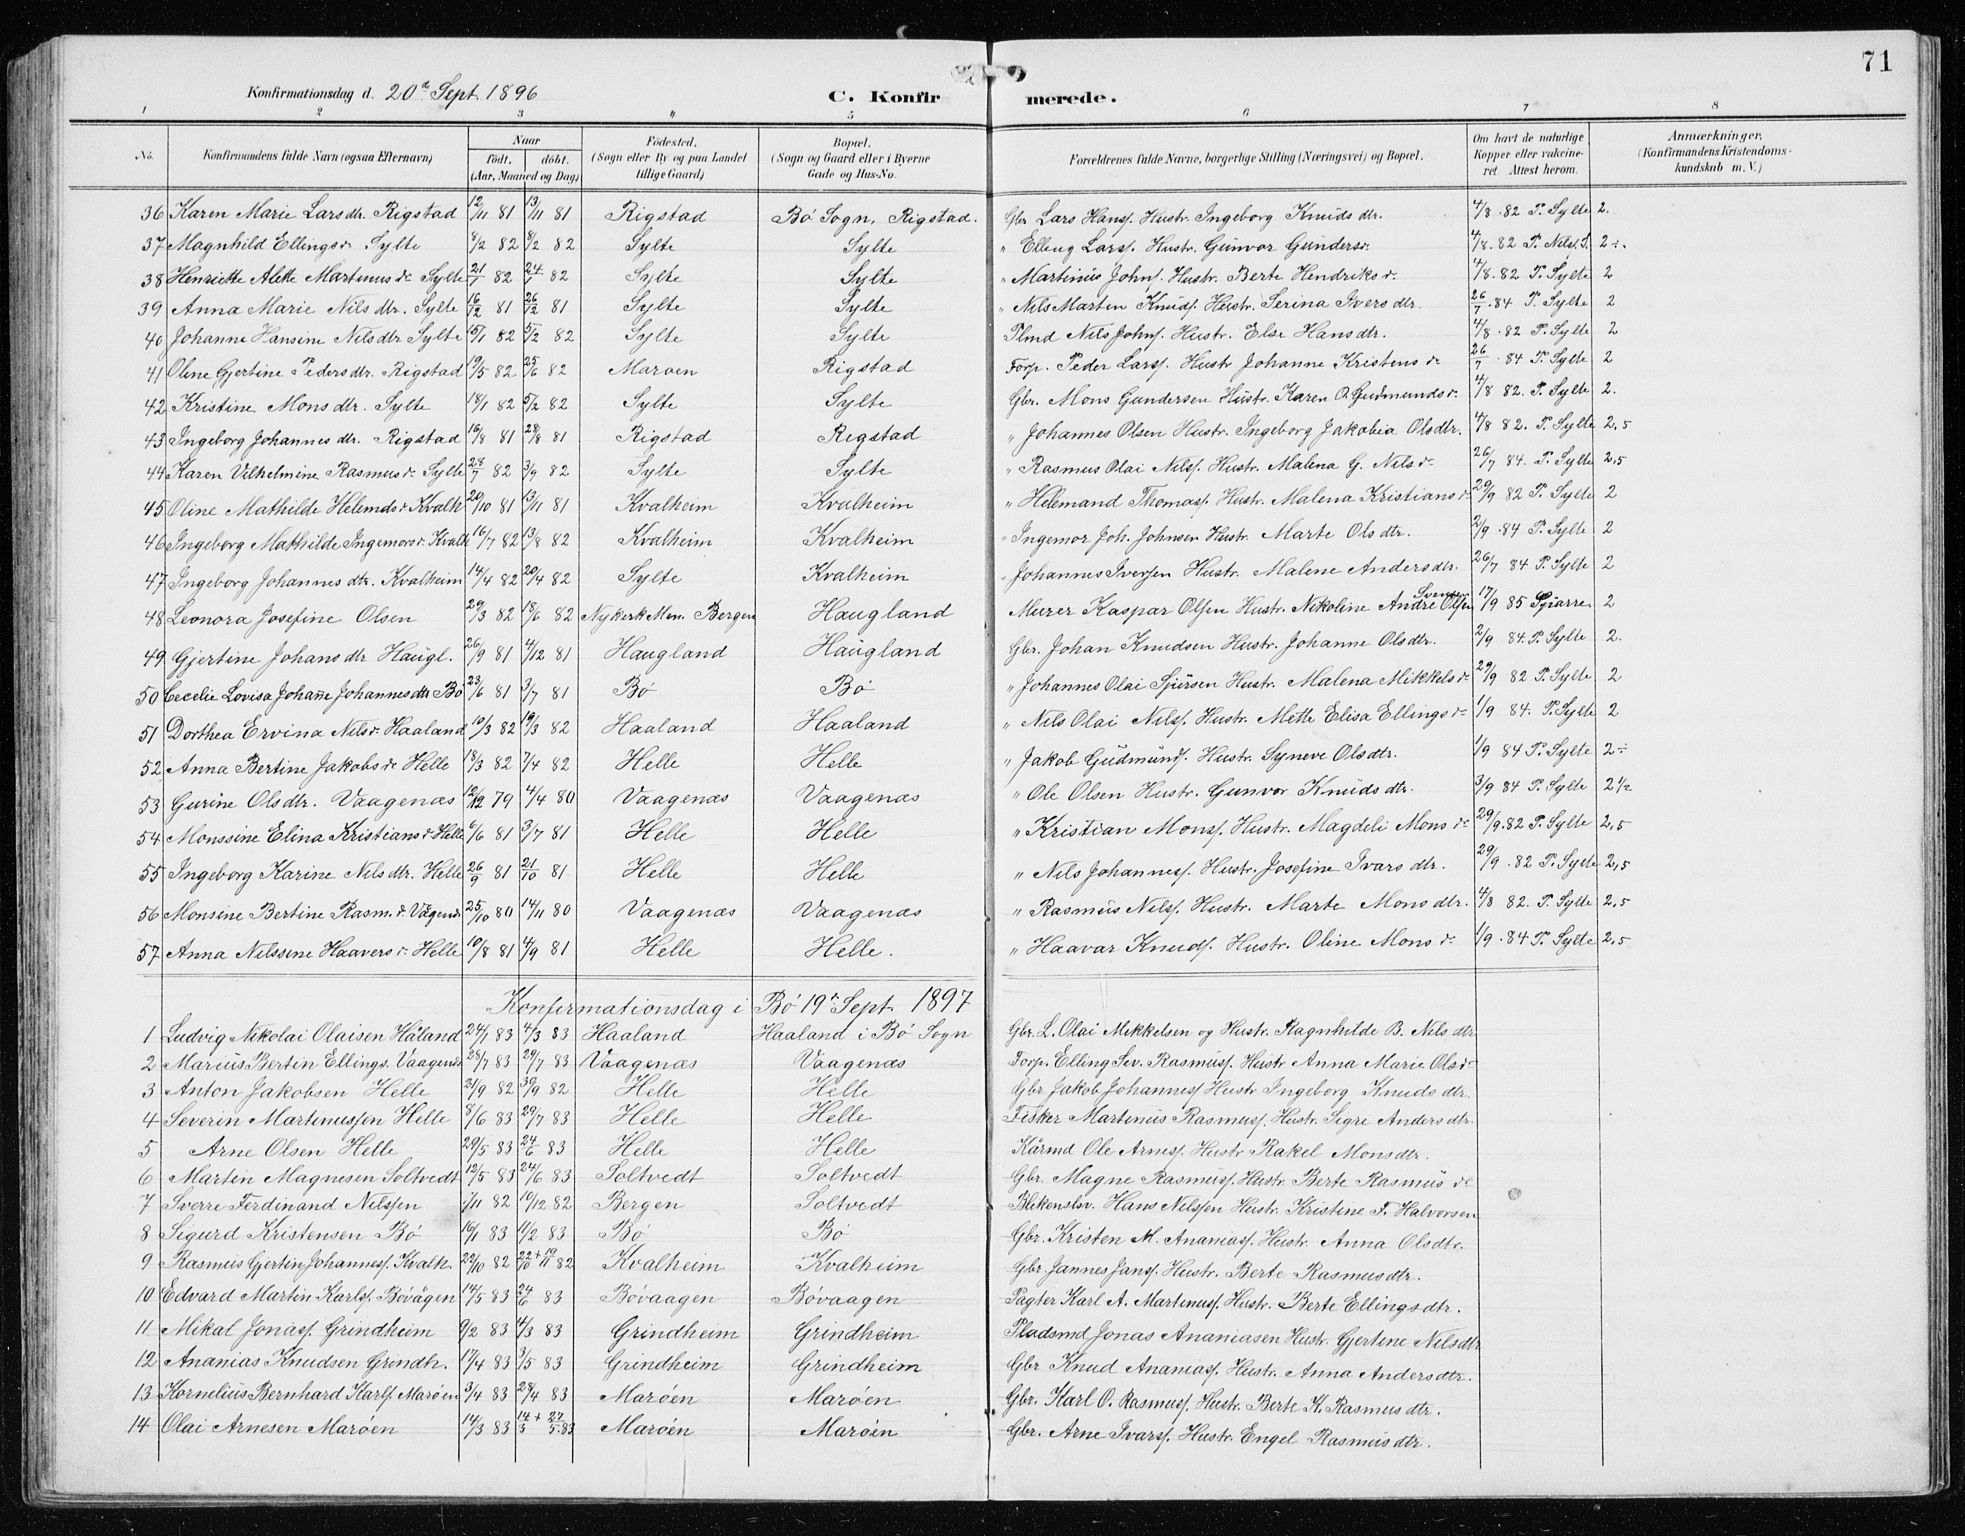 71
Konfirmationsdag d. 20de Sept. 1896 C. Konfirmerede.
1 2 3 4 5 6 7 8
No. Konfirmandens fulde Navn (ogsaa Efternavn) Naar født. døbt. (Aar, Maaned og Dag) Fødested. (Sogn eller By og paa Landet tillige Gaard) Bopæl. (Sogn og Gaard eller i Byerne Gade og Hus-No. Forældrenes fulde Navne, borgerlige Stilling (Næringsvei) og Bopæl. Om havt de naturlige Kopper eller vakcineret. Attest herom. Anmærkninger. (Konfirmandens Kristendomskundskab m. V.)
36 Karen Marie Larsdtr. Rigstad 12/11 81 13/11 81 Rigstad Bø Sogn, Rigstad. Gbr. Lars Hansf. Hustr. Ingeborg Knudsdtr. 4/8 82 P. Sylte 2.
37 Magnhild Ellingsdr. Sylte 8/2 82 8/2 82 Sylte Sylte " Elling Larsf. Hustr. Gunvor Gundersdr. 4/8 82 P. Nils S. 2÷.
38 Henriette Alette Martinusdr Sylte 21/7 82 24/7 82 Sylte Sylte " Martinus Johnf. Hustr. Berte Hendriksdr. 4/8 82 P. Sylte 2
39 Anna Marie Nilsdtr. Sylte 16/12 81 26/12 81 Sylte Sylte " Nils Marten Knudf. Hustr. Serina Iversdtr. 26/7 84 P. Sylte 2
40 Johanne Hansine Nilsdtr Sylte 15/1 82 5/2 82 Sylte Sylte Plmd Nils Johnf. Hustr. Else Hansdtr. 4/8 82 P. Sylte 2
41 Oline Gjertine Pedersdtr. Rigstad 19/5 82 25/6 82 Maroen Rigstad Forp. Peder Larsf. Hustr Johanne Kristensdr 26/7 84 P. Sylte 2
42 Kristine Monsdtr. Sylte 18/1 82 5/2 82 Sylte Sylte Gbr. Mons Gundersen Hustr. Karen O. Gudmundsdr. 4/8 82. P. Sylte 2.
43 Ingeborg Johannesdtr. Rigstad 16/8 81 28/8 81 Rigstad Rigstad " Johannes Olsen Hustr. Ingeborg Jakobia Olsdtr. 4/8 82. P. Sylte 2,5
44 Karen Vilhelmine Rasmusdr. Sylte 28/7 82 3/9 82 Sylte Sylte " Rasmus Olai Nilsf. Hustr. Malena G. Nilsdr 26/7 84. P. Sylte 2,5
45 Oline Mathilde Helemdsdr Kvalh 20/10 81 13/11 81 Kvalheim Kvalheim " Helemand Thomasf. Hustr. Malena Kristiansdr 29/9 82 P. Sylte 2
46 Ingeborg Mathilde Ingemorsdr. Kvalh 16/7 82 13/8 82 Kvalheim Kvalheim " Ingemor Joh. Johnsen Hustr. Marte Olsdtr. 2/9 84 P. Sylte 2
47 Ingeborg Johannesdtr. Kvalheim 14/4 82 20/4 82 Sylte Kvalheim " Johannes Iversen Hustr. Malene Andersdtr. 26/7 84 P. Sylte 2
48 Leonora Josefine Olsen 29/3 82 18/6 82 Nykerk Men. Bergen Haugland Murer Kaspar Olsen Hustr. Nikoline André Olsen 17/9 85 2
49 Gjertine Johansdtr Haugl. 26/9 81 4/12 81 Haugland Haugland Gbr. Johan Knudsen Hustr. Johanne Olsdtr. 2/9 84. P. Sylte 2.
50 Cecelie Lovisa Johane Johannesdtr Bø 23/6 81 3/7 81 Bø Bø " Johannes Olai Sjursen Hustr. Malena Mikkelsdr 29/9 82 P. Sylte 2
51 Dorthea Ervina Nilsdr. Haaland 10/3 82 19/3 82 Haaland Haaland " Nils Olai Nilsf. Hustr. Mette Elisa Ellingsdr 1/9 84. P. Sylte 2
52 Anna Bertine Jakobsdr Helle 18/3 82 7/4 82 Helle Helle " Jakob Gudmundf. Hustr. Syneve Olsdtr. 1/9 84 P. Sylte 2÷
53 Gurine Olsdtr. Vaagenæs 12/12 79 4/4 80 Vaagenæs Vaagenæs " Ole Olsen Hustr. Gunvor Knudsdtr. 3/9 84 P. Sylte 2½
54 Monssine Elina Kristiansdr Helle 6/6 81 3/7 81 Helle Helle " Kristian Monsf. Hustr. Magdeli Monsdr 29/9 82 P. Sylte 2,5
55 Ingeborg Karine Nilsdtr. Helle 26/9 81 21/10 81 Helle Helle " Nils Johannesf. Hustr. Josefine Ivarsdtr. 29/9 82 P. Sylte 2,5
56 Monsine Bertine Rasm.dr. Vågenæs 25/10 80 14/11 80 Vaagenæs Vaagenæs " Rasmus Nilsf. Hustr. Marte Monsdtr. 4/8 82. P. Sylte 2,5
57 Anna Nilssine Haaversdr. Helle 10/8 81 4/9 81 Helle Helle. " Haavar Knudf. Hustr. Oline Monsdr 1/9 84 P. Sylte 2,5
Konfirmationsdag i Bø 19de Sept. 1897
1 Ludvig Nikolai Olaisen Håland 24/1 83 4/3 83 Haaland Haaland i Bø Sogn Gbr. L. Olai Mikkelsen og Hustr. Ragnhilde B. Nilsdtr
2 Marius Bertin Ellings. Vaagenæs 28/7 83 29/7 83 Vaagenæs Vaagenæs Forp. Elling Sev. Rasmusf. Hustr Anna Marie Olsdr
3 Anton Jakobsen Helle 21/9 82 30/9 82 Helle Helle Gbr Jakob Johannesf Hustr Ingeborg Knudsdtr.
4 Severin Martinussen Helle 8/6 83 29/7 83 Helle Helle Fisker Martinus Rasmusf. Hustr. Sigre Andersdtr.
5 Arne Olsen Helle 29/5 83 24/6 83 Helle Helle Kårmd Ole Arnesf. Hustr Rakel Monsdtr.
6 Martin Magnesen Soltvedt 12/5 83 24/6 83 Soltvedt Soltvedt Gbr. Magne Rasmusf. Hustr. Berte Rasmusdr
7 Sverre Ferdinand Nilssen 7/11 82 10/12 82 Bergen Soltvedt Blikenslsv. Hans Nilssen Hustr. Kristine F. Halvorsen
8 Sigurd Kristensen Bø 10/1 83 11/2 83 Bø Bø Gbr. Kristen M. Ananiasf. Hustr. Anna Olsdtr.
9 Rasmus Gjertin Johannesf. Kvalh. 22/10 82 22/10 + 19/11 82 Kvalheim Kvalheim Gbr Jannes Jansf. Hustr. Berte Rasmusdtr.
10 Edvard Martin Karlsf. Bøvågen 14/5 83 24/6 83 Bøvaagen Bøvaagen Pagter Karl A. Martinusf. Hustr. Berte Ellingsdtr.
11 Mikal Jonasf. Grindheim 9/2 83 4/3 83 Grindheim Grindheim Pladsmd Jonas Ananiasen Hustr. Gjertine Nilsdtr
12 Ananias Knudsen Grindh. 17/4 83 3/5 83 Grindheim Grindheim Gbr Knud Ananiasf. Hustr. Anna Andersdtr.
13 Kornelius Bernhard Karlsf Marøen 3/4 83 29/4 83 Marøen Marøen Gbr. Karl O. Rasmusf. Hustr. Berte K. Rasmusdtr.
14 Olai Arnesen Marøen 14/3 83 14/3 + 27/5 83 Marøen Marøen Gbr. Arne Ivarsf. Hustr. Engel Rasmusdtr.